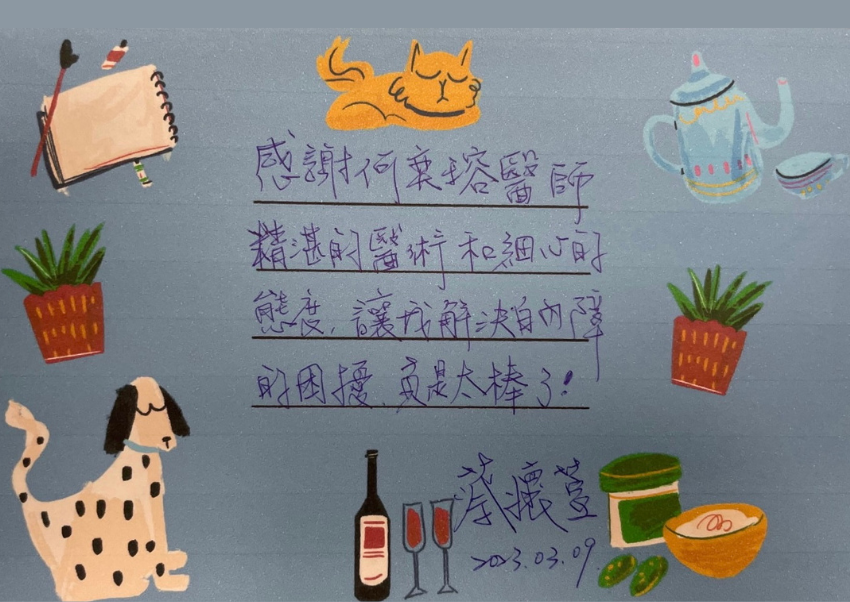 感謝何奕瑢醫師
精湛的醫術和細心的
態度，讓我解決白內障
的困擾，真是太棒了！
蔡懷萱
2023.03.09.